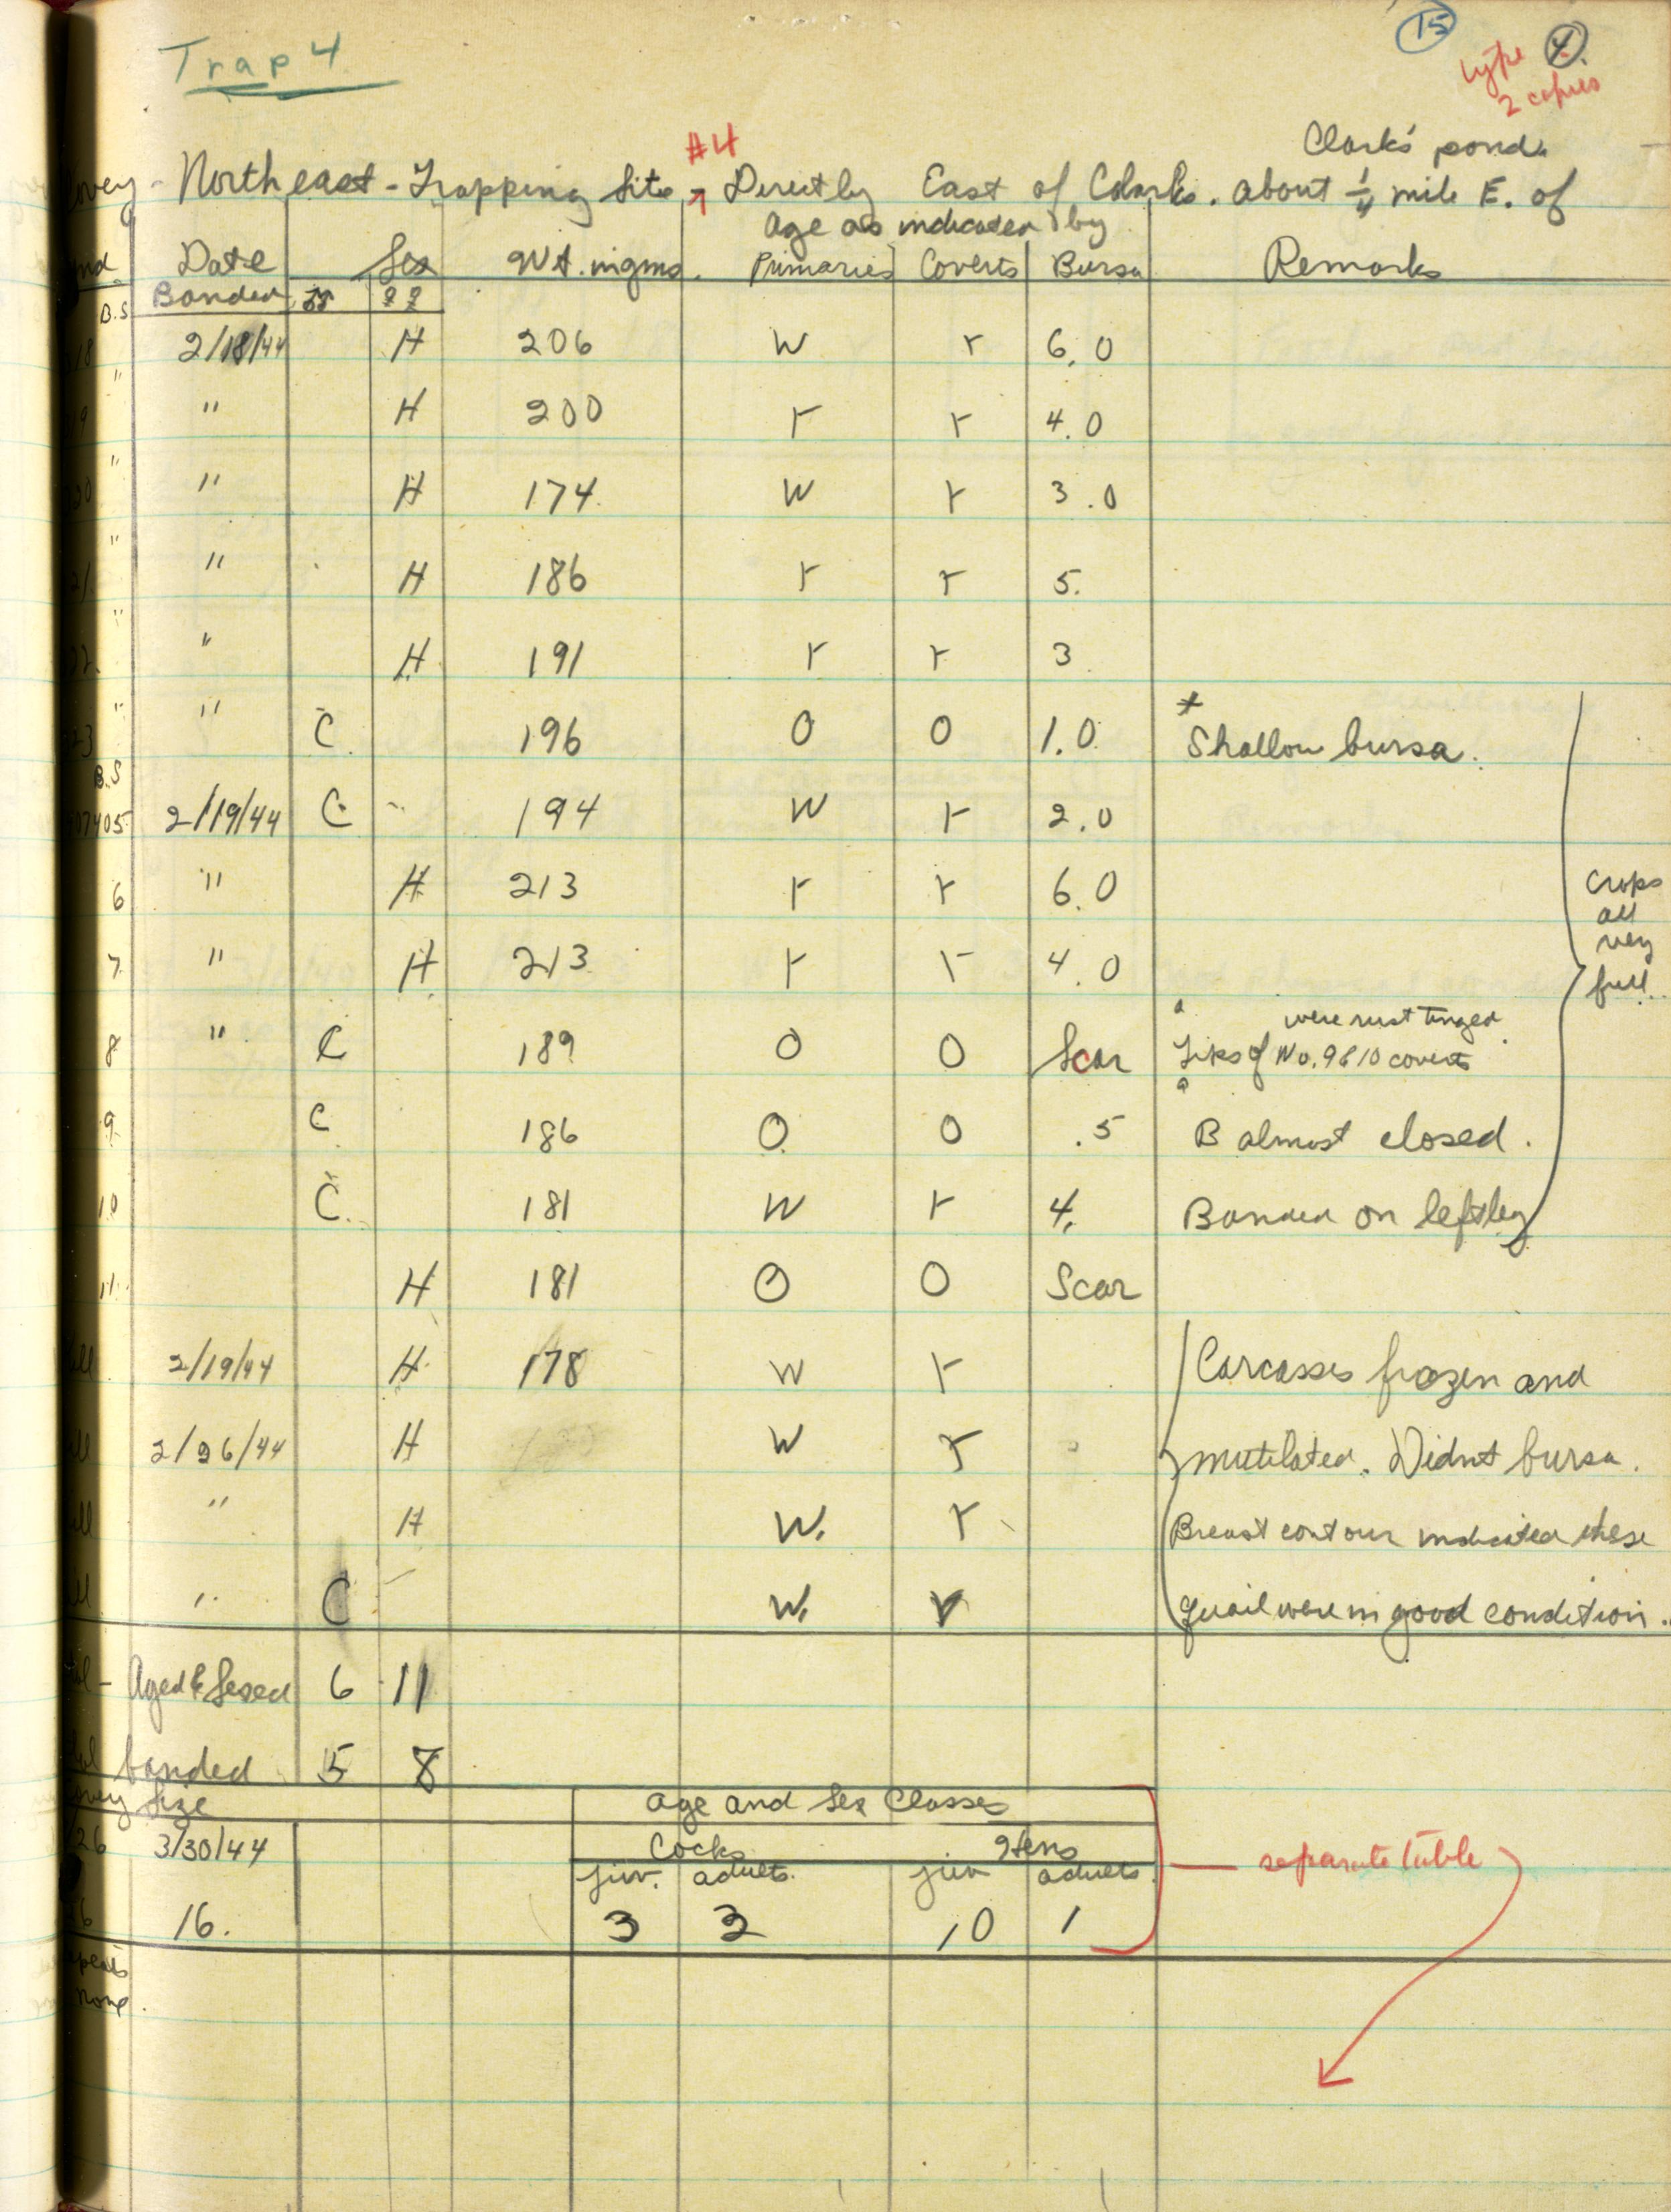 Trap 4
15
4.
type
2 copies
#4
Clark's pond.
Northeast - Trapping Site Directly East of Clarks. About 1/4 mile E. of
Age as indicated by
Date Sex Wt. in gms. Primaries Coverts Bursa Remarks
Banded ♂♂ ♀♀
B.S
2/18/44 H 206 W r 6.0
" H 200 r r 4.0
" H 174 W r 3.0
" H 186 r r 5.
" H 191 r r 3
" C 196 O O 1.0 * Shallow bursa.
B.S
2/19/44 C 194 W r 2.0
6 " H 213 r r 6.0
7 " H 213 r r 4.0
crops
all
very
full.
were rust tinged
8 " C 189 O O Scar Tips of No. 9&10 coverts
9. C 186 O O .5 B almost closed.
10 C. 181 W r 4. Banded on left leg
11. H 181 O O Scar
2/19/44 H 178 W r Carcasses frozen and
2/26/44 H W r mutilated. Didnt bursa.
" H W. r Breast contour indicated these
" C W. r quail were in good condition.
- Aged & Sexed 6 11
banded 5 8
Size Age and Sex Classes
26 3/30/44 Cocks Hens
juv. adults. juv adults.
separate table
16. 3 3 10 1
none.